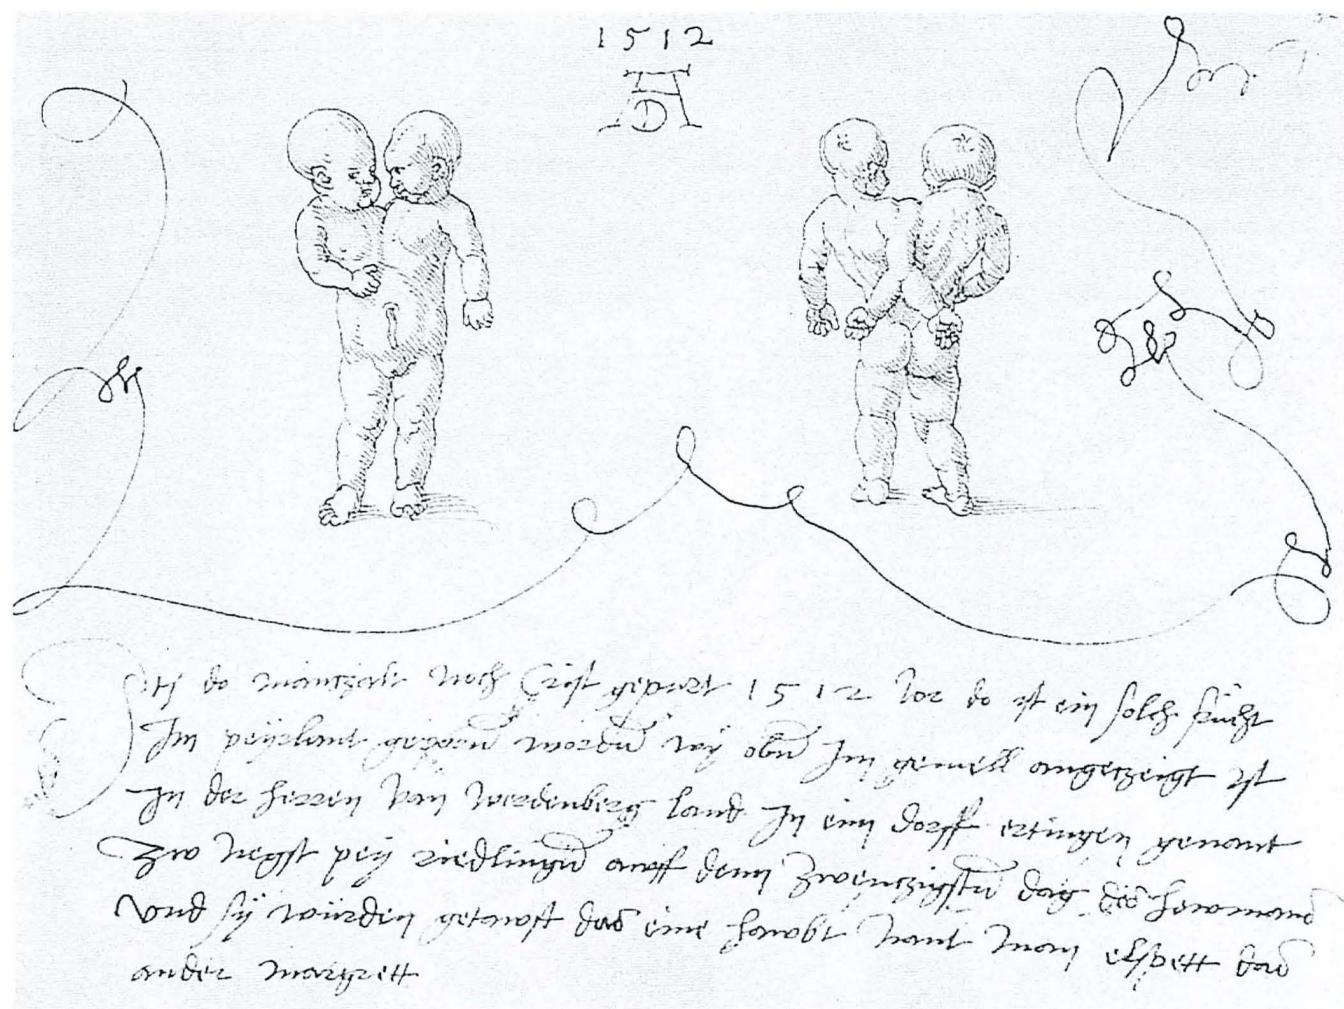 1512
AD
Itz do man tzalt noch Crist gepurt 1512 Jor do ist ein solch frücht
Im peyrlant geporn worden wy obn Im gemell angetzeigt ist
In der herren van werdenberg land In eim dorff ertingen genant
zw negst pey riedlingen awff dem zwentzigsten dag des hewmand
vnd sy würden getawft das eine hawbt nant man elspett das
ander margrett